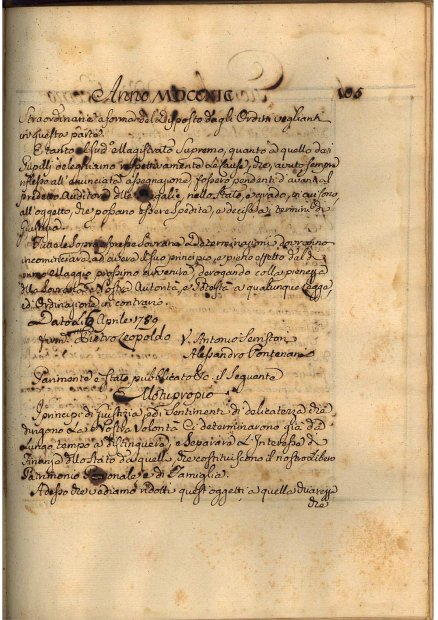 Anno MDCCXIC 105
Straordinarie a forma del disposto dagli Ordini veglianti
in questa parte.
E tanto il sud.º Magistrato Supremo, quanto a quello dei
Pupilli deleghiamo respettivamente le Cause, che, avuto sempre
riflesso all' enunciata assegnazione, fossero pendenti d'avanti al
predetto Auditore delle Regalie, nello stato, e grado, in cui sono
all' oggetto, che possano essere spedite, e decise a termini di
Giustizia.
Tutte le sopra espresse Sovrane Determinazioni dovranno
incominciare ad avere il suo principio, e pieno effetto dal dì
primo Maggio prossimo avvenire, derogando colla pienezza
della Sovrana e Nostra Autorità, e Potestà a qualunque Legge,
ed Ordinazione in contrario.
Dato li 6 Aprile 1789
Pietro Leopoldo V. Antonio Serristori
Alessandro Pontenani
Parimente è stato pubblicato &c. il seguente
Motuproprio
I principj di Giustizia, ed i Sentimenti di delicatezza che
dirigono La Nostra Volontà Ci determinarono già da
Lungo tempo a distinguere, e Separare L'Interesse di
Finanza dello Stato da quello che costituiscono il nostro libero
Patrimonio Personale e di Famiglia.
Adesso che vediamo ridotti quest'oggetti a quella chiarezza
che